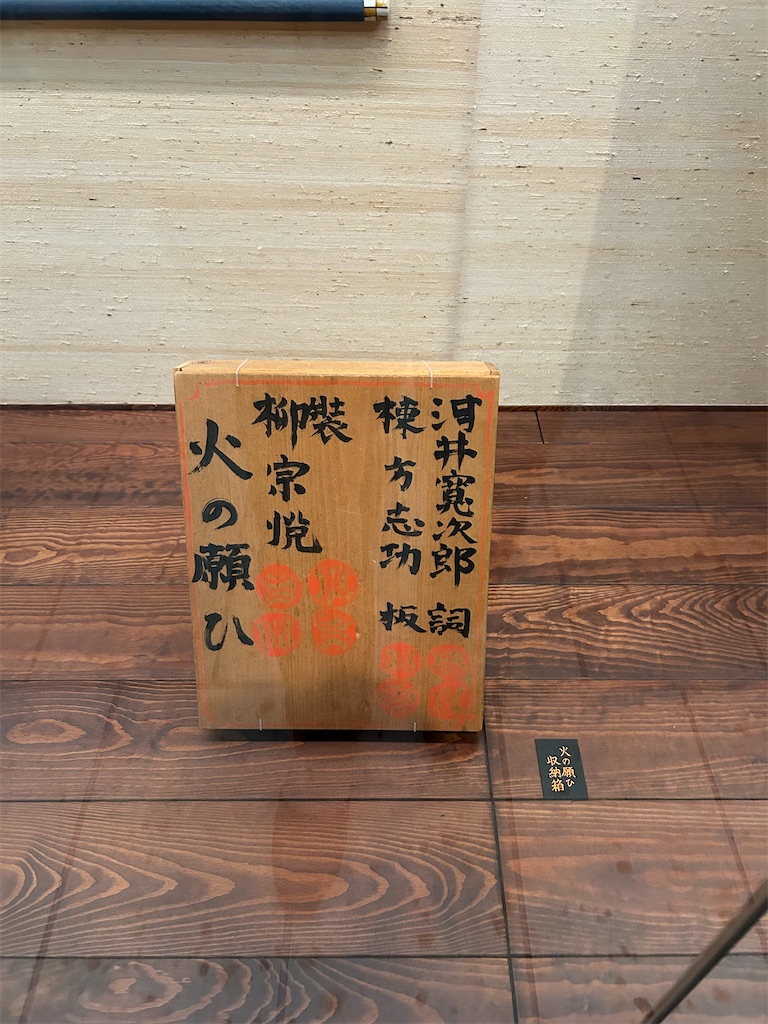 河井寛次郎 詞
棟方志功 板
装
柳宗悦
火の願ひ
火の願ひ
収納箱